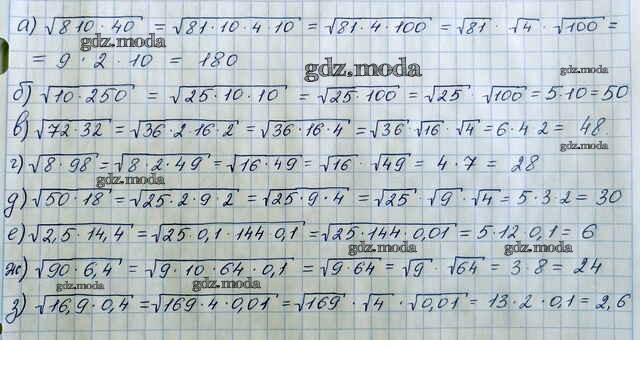 а) √810·40 = √81·10·4·10 = √81·4·100 = √81 · √4 · √100 =
gdz.moda
= 9 · 2 · 10 = 180
gdz.moda
gdz.moda
б) √10·250 = √25·10·10 = √25·100 = √25 · √100 = 5·10 = 50
в) √72·32 = √36·2·16·2 = √36·16·4 = √36 · √16 · √4 = 6·4 2 = 48.
gdz.moda
г) √8·98 = √8·2·49 = √16·49 = √16 · √49 = 4·7 = 28
gdz.moda
д) √50·18 = √25·2·9·2 = √25·9·4 = √25 · √9 · √4 = 5·3·2 = 30
е) √2,5·14,4 = √25·0,1·144·0,1 = √25·144·0,01 = 5·12·0,1 = 6
gdz.moda
gdz.moda
ж) √90·6,4 = √9·10·64·0,1 = √9·64 = √9 · √64 = 3·8 = 24
gdz.moda
gdz.moda
з) √16,9·0,4 = √169·4·0,01 = √169 · √4 · √0,01 = 13·2·0,1 = 2,6